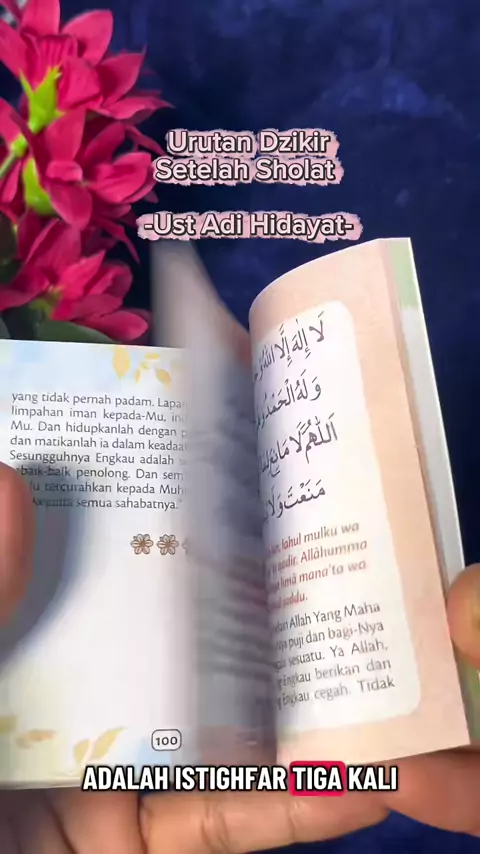 Urutan Dzikir
Setelah Sholat
-Ust Adi Hidayat-
yang tidak pernah padam.
limpahan iman kepada-Mu,
Mu. Dan hidupkanlah dengan
dan matikanlah ia dalam
Sesungguhnya Engkau adalah
penolong. Dan
tercurahkan kepada
semua sahabatnya."
100
لَا إِلٰهَ إِلَّا اللهُ
وَلَهُ الْحَمْدُ
اَللّٰهُمَّ لَا مَانِعَ
مَنَعْتَ وَلَا
lahul mulku wa
Allâhumma
limâ mana'ta wa
Allah Yang Maha
puji dan bagi-Nya
sesuatu. Ya Allah,
Engkau berikan dan
Engkau cegah. Tidak
ADALAH ISTIGHFAR TIGA KALI